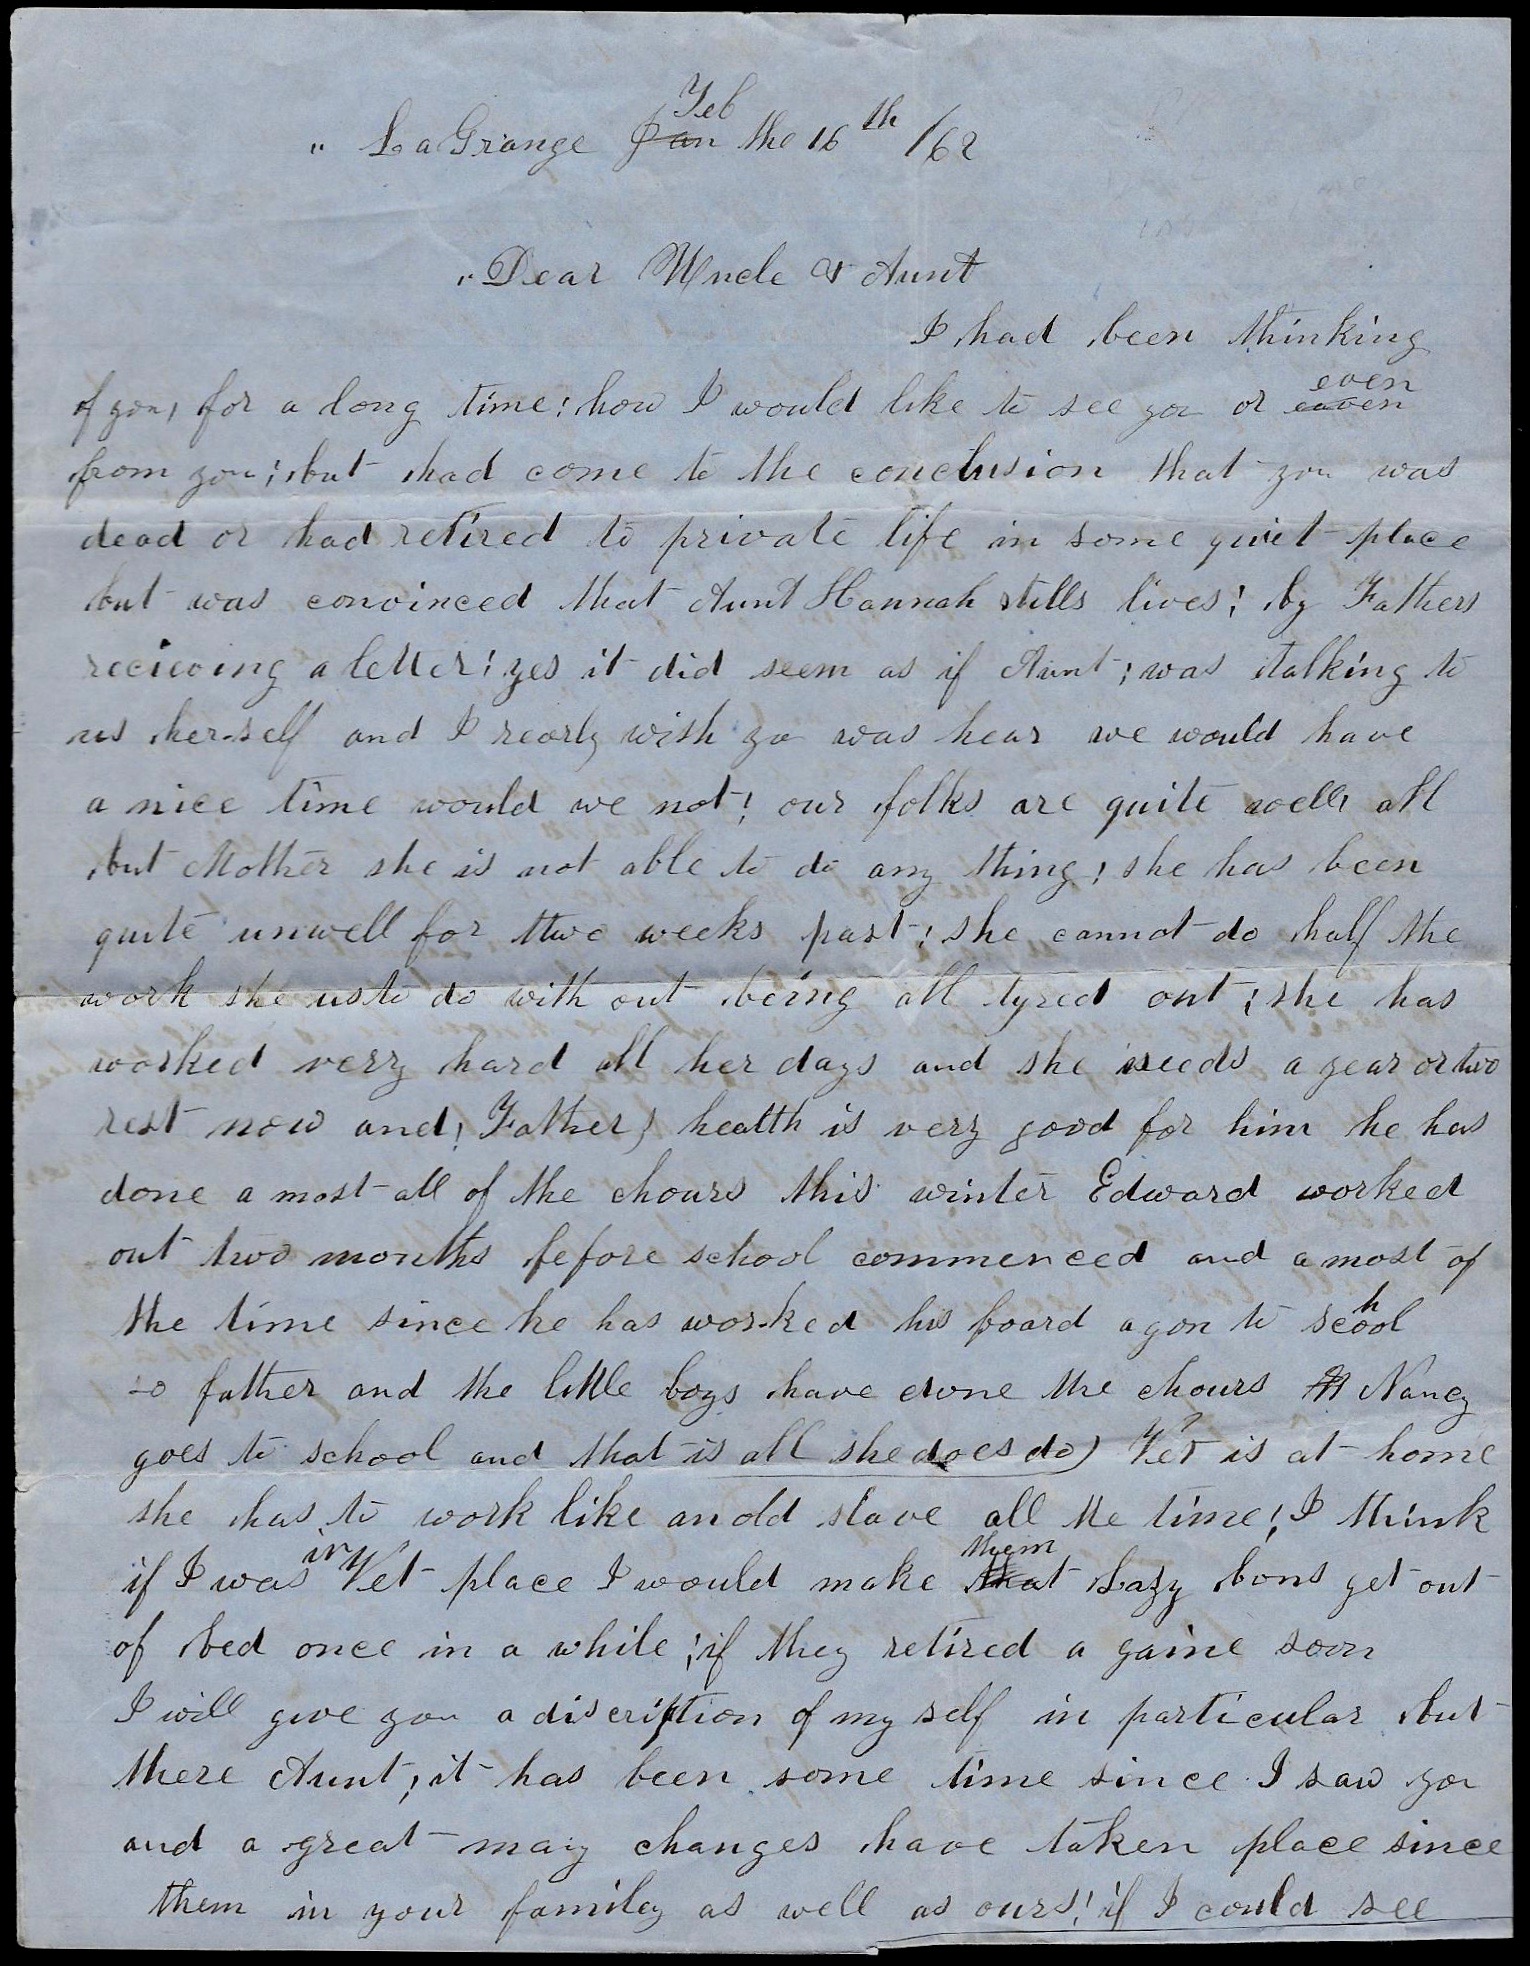 " LaGrange Jan Feb the 16th /62
" Dear Uncle & Aunt
I had been thinking
of you, for a long time; how I would like to see you or eaven even
from you; but had come to the conclusion that you was
dead or had retired to private life in some quiet place
but was convinced that Aunt Hannah stills lives; by Fathers
recieving a letter; yes it did seem as if Aunt; was talking to
us her-self and I rearly wish yo was hear we would have
a nice time would we not; our folks are quite well, all
but Mother she is not able to do any thing; she has been
quite unwell for two weeks past; she cannot do half the
work she usto do with out being all tyred out; she has
worked very hard all her days and she needs a year or two
rest now and, Father, health is very good for him he has
done a most all of the chours this winter Edward worked
out two months fefore school commenced and a most of
the time since he has wor-ked his board agon to school
so father and the little boys have done the chours Nancy
goes to school and that is all she does do) Vet is at home
she has to work like an old slave all the time; I think
if I was in Vet place I would make that them Lazy bons get out
of bed once in a while; if they retired a gaine soon
I will give you a discription of my self in particular but
there Aunt; it has been some time since I saw you
and a great many changes have taken place since
them in your family as well as ours; if I could see